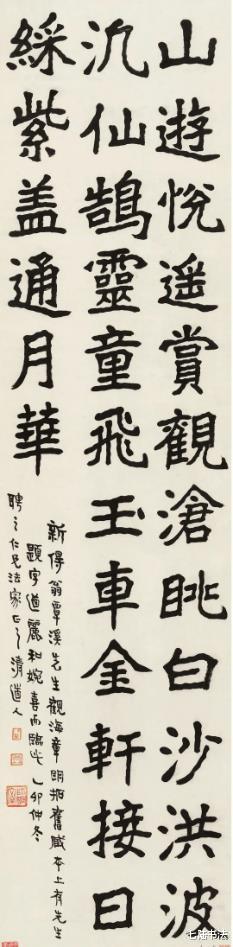 山遊悅遥賞觀滄眺白沙洪波
汎仙鵠靈童飛玉車金軒接日
綵紫盖通月華
新得翁覃溪先生觀海章明拓舊藏本上有先生
題字遒麗和婉喜而臨此乙卯仲冬
聘之仁兄法家正之清道人
七陆书法